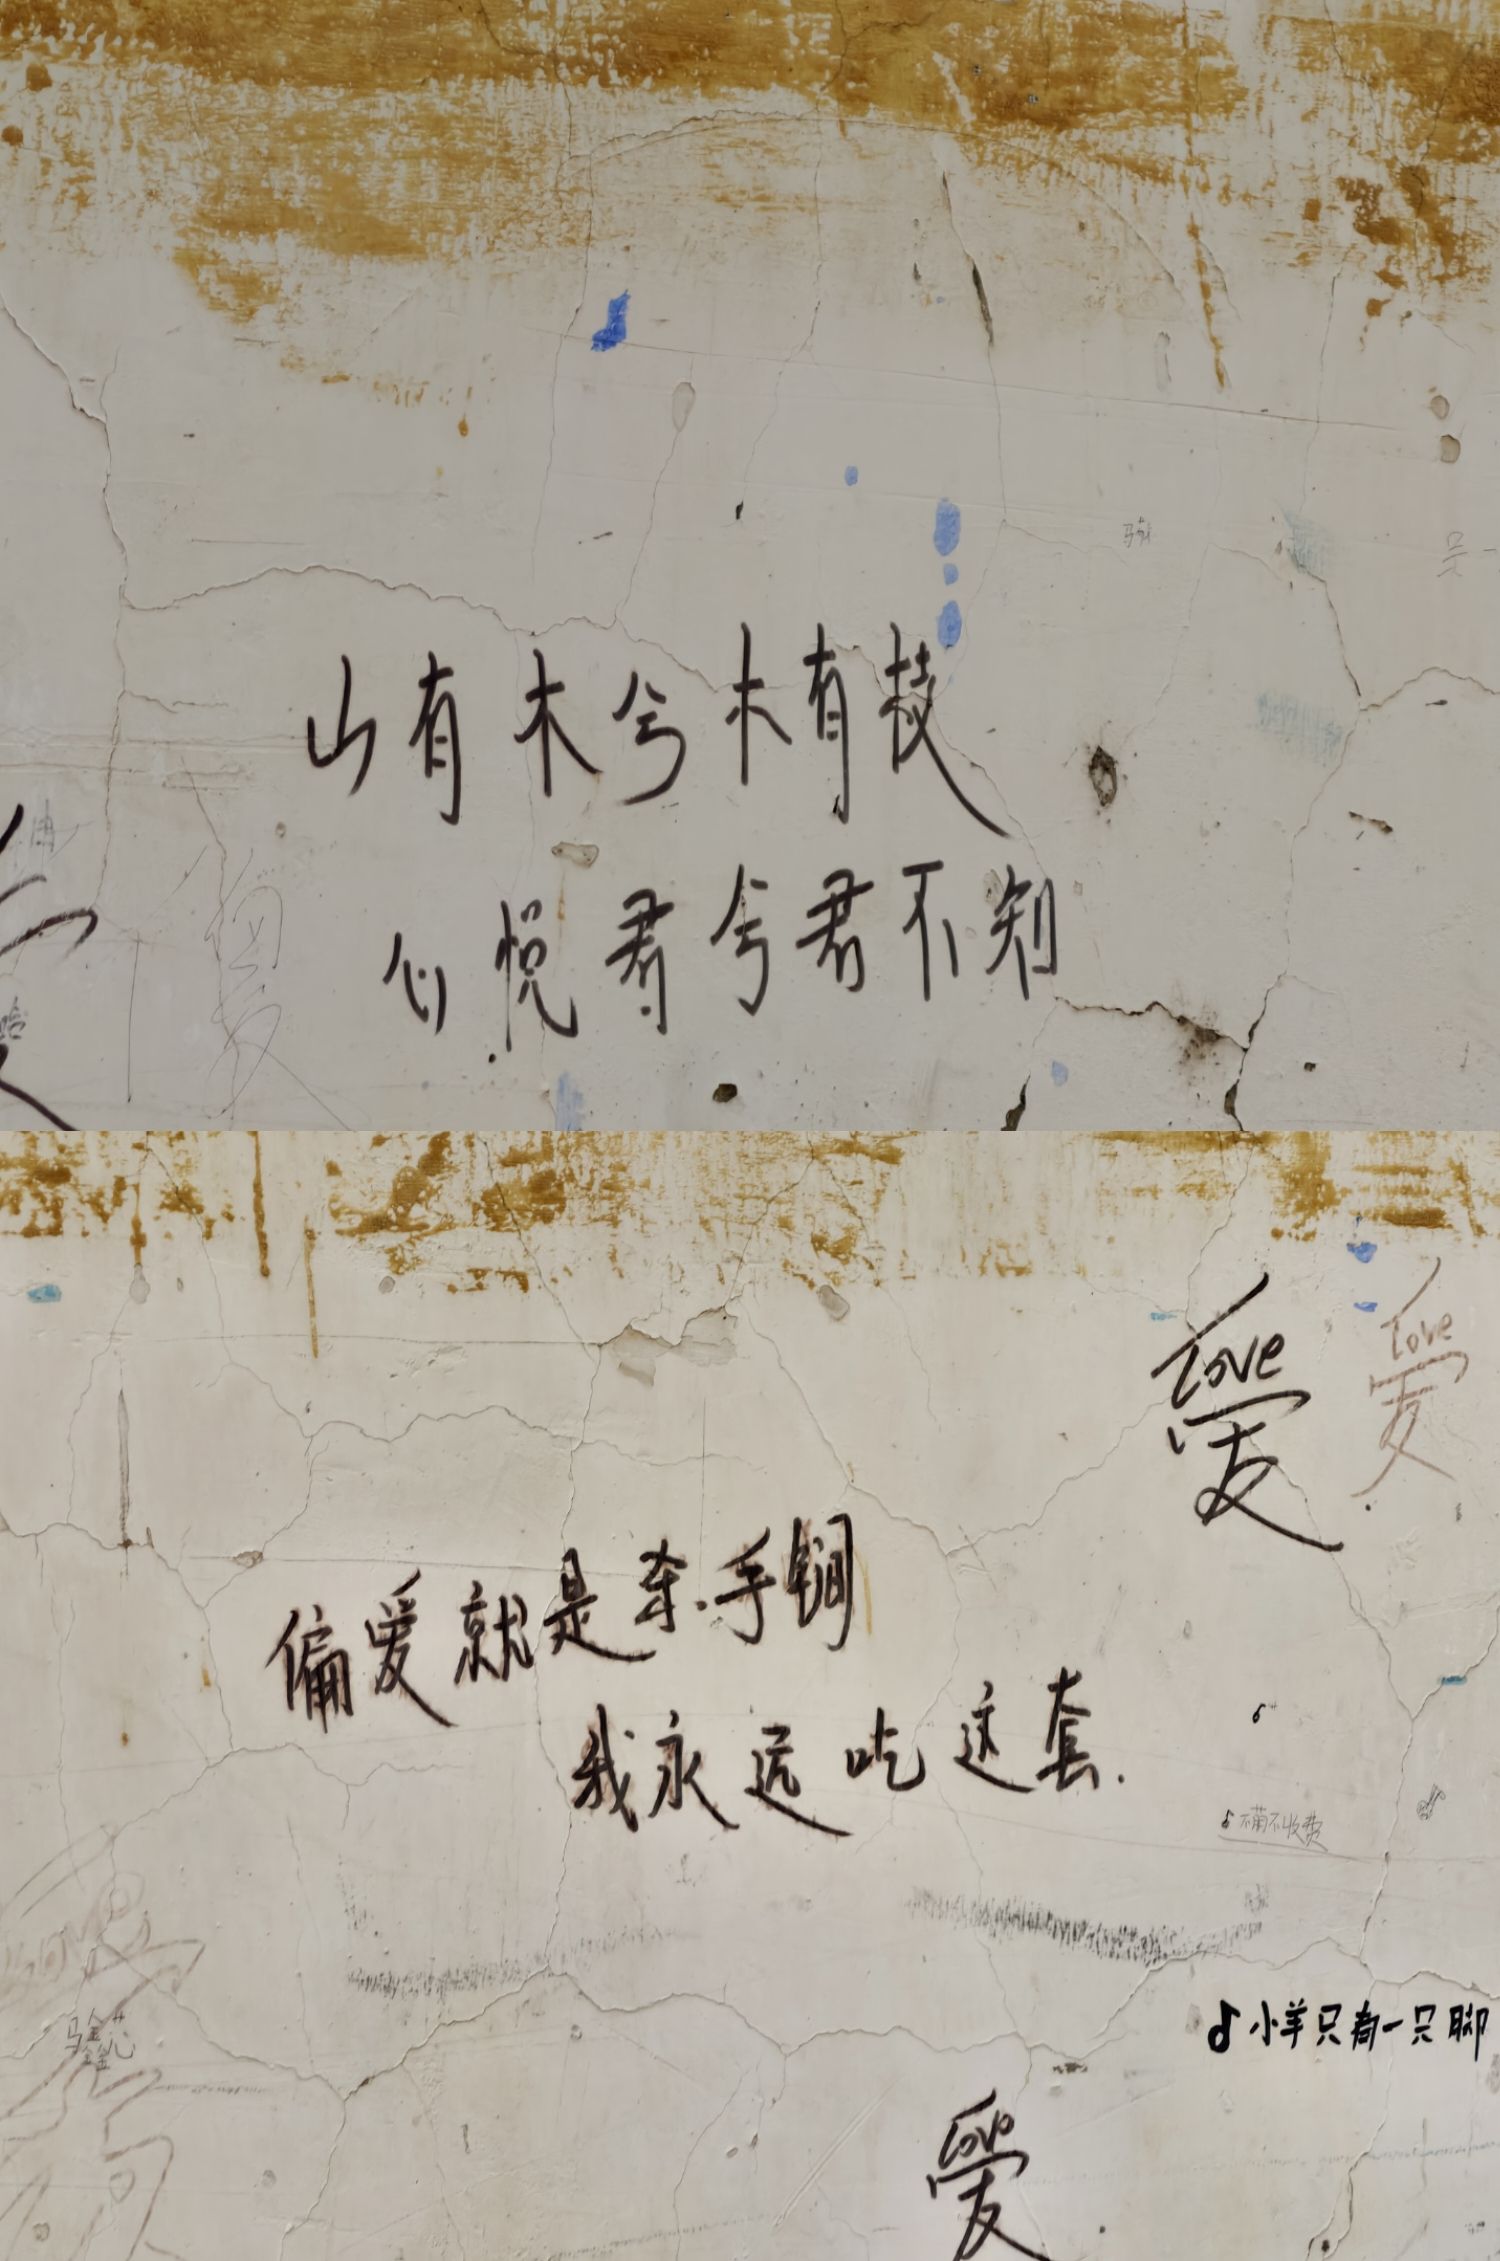 山有木兮木有枝
心悦君兮君不知
love
友
love
友
偏爱就是杀手锏
我永远吃这套.
不菊不收费
小羊只有一只脚
love
友